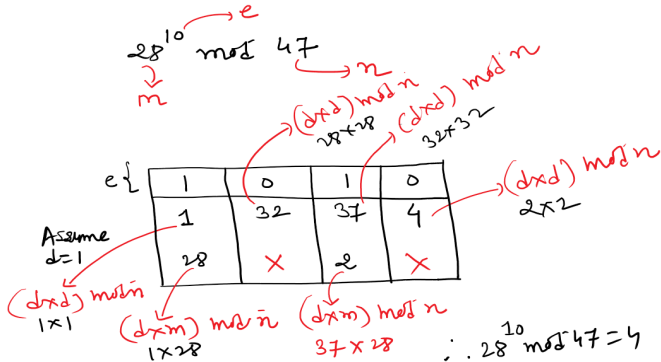 e
28^10 mod 47
m
n
(d×d) mod n
28×28
(d×d) mod n
32×32
e{ 1 0 1 0
1 32 37 4
(d×d) mod n
2×2
Assume
d=1
28 × 2 ×
(d×d) mod n
1×1
(d×m) mod n
1×28
(d×m) mod n
37×28
∴ 28^10 mod 47 = 4